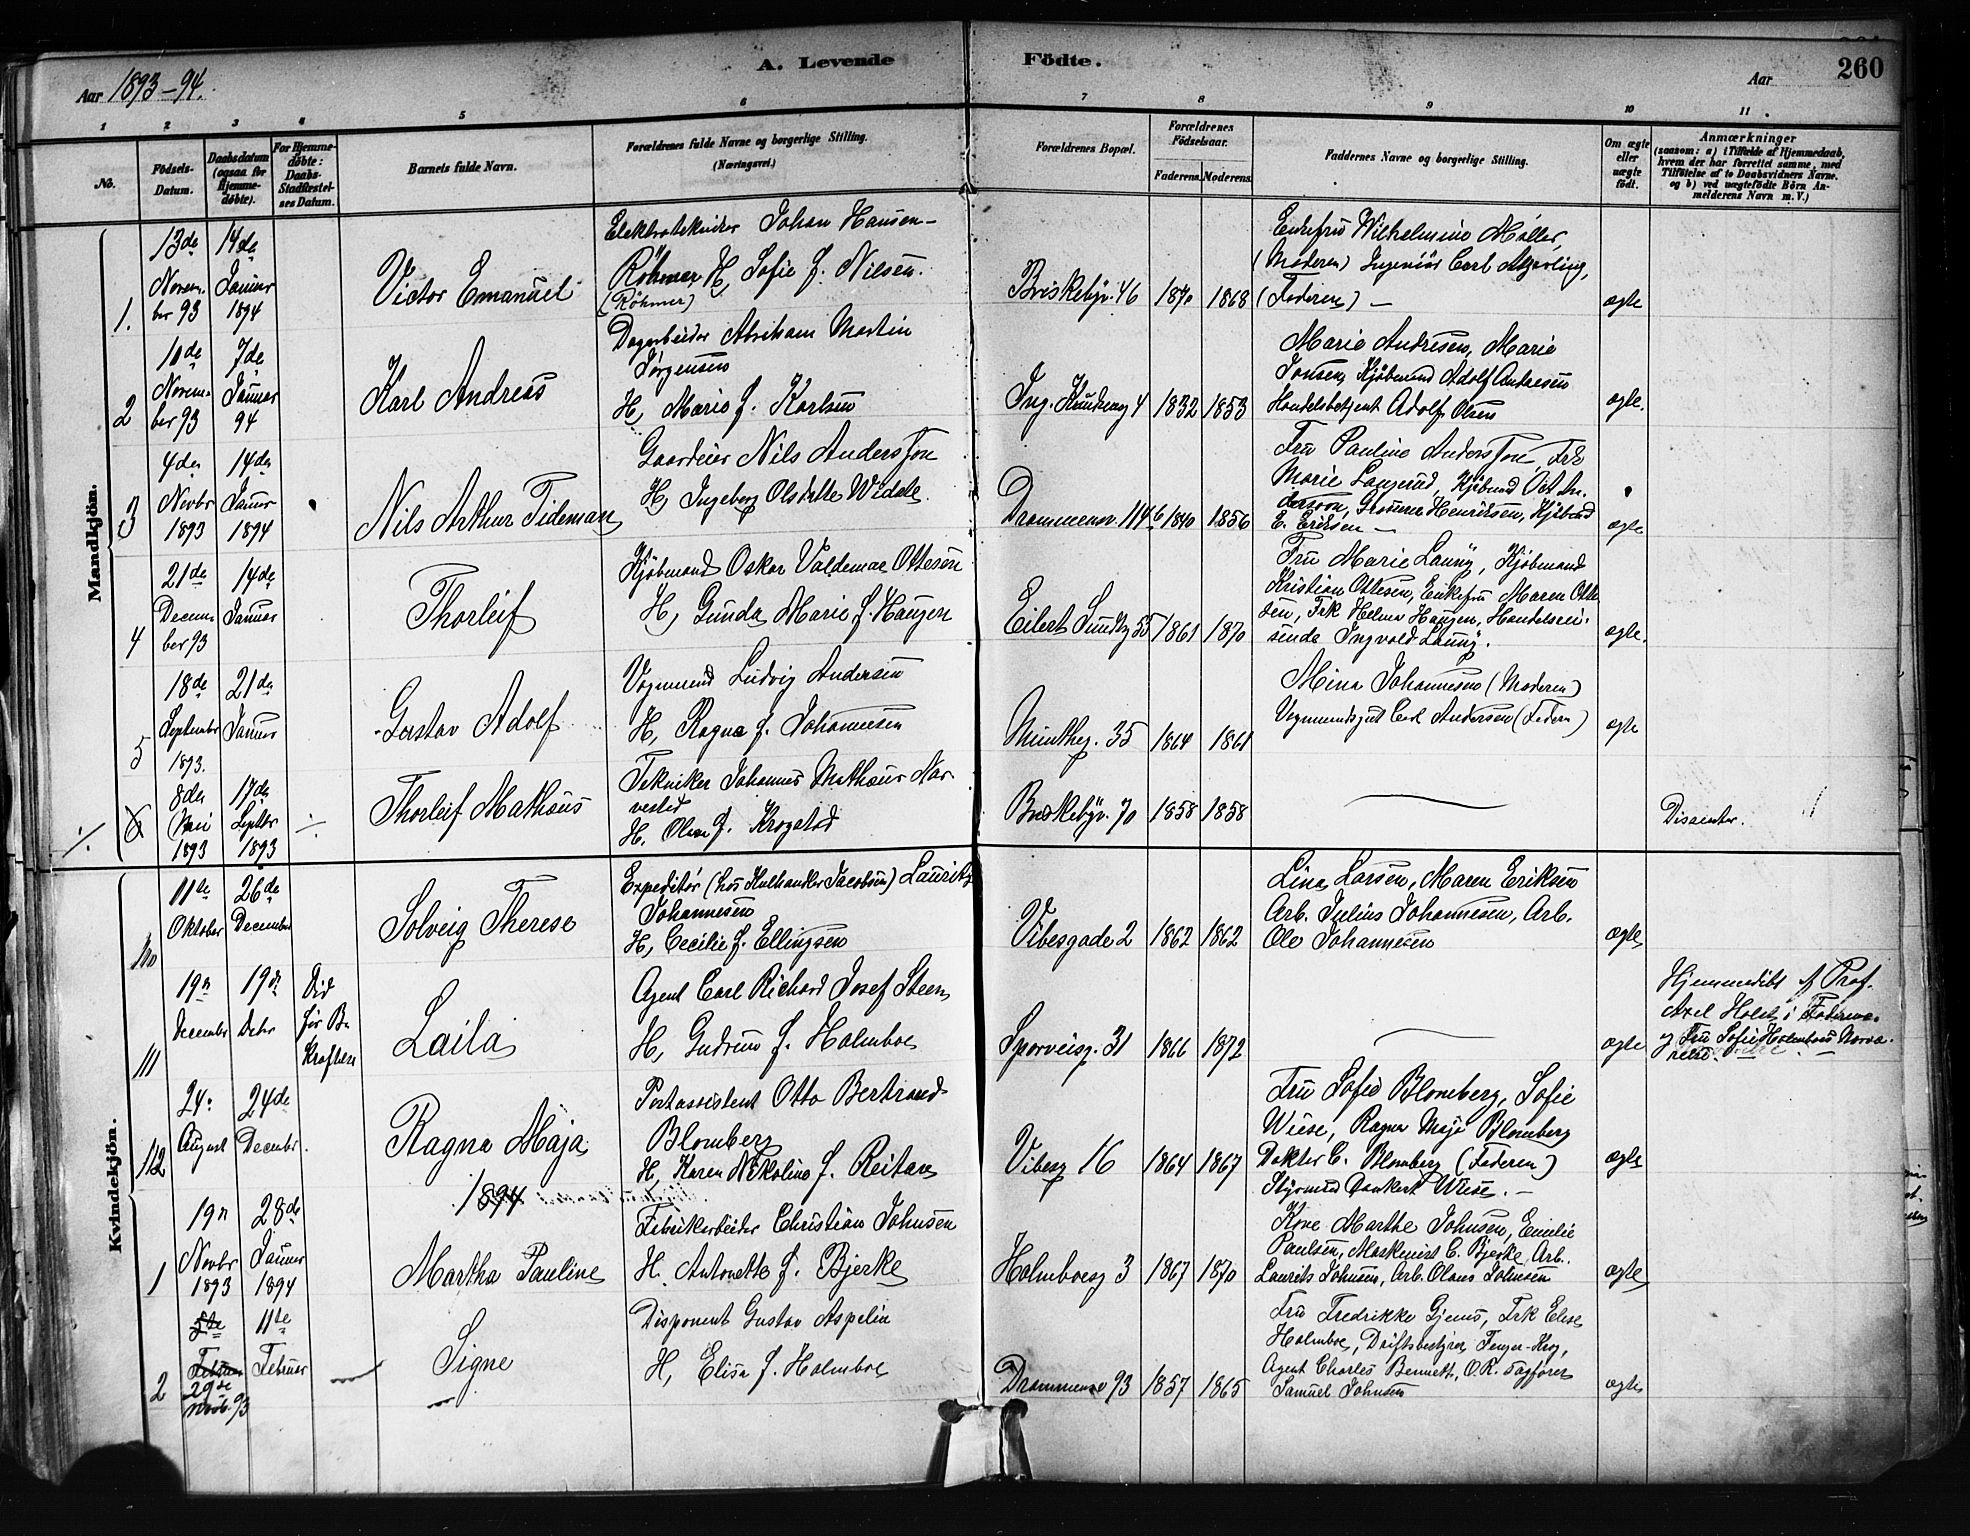 Aar 1893-94.
A. Levende Födte.
Aar
260
1 2 3 4 5 6 7 8 9 10 11
No.
Födsels-Datum.
Daabsdatum (ogsaa for Hjemme-døbte).
For Hjemme-døbte: Daabs-Stadfæstel-ses Datum.
Barnets fulde Navn.
Forældrenes fulde Navne og borgerlige Stilling. (Næringsvei.)
Forældrenes Bopæl.
Forældrenes Födselsaar.
Faderens. Moderens.
Faddernes Navne og borgerlige Stilling.
Om ægte eller uægte födt.
Anmærkninger
(saasom: a) i Tilfælde af Hjemmedaab,
hvem der har forrettet samme, med
Tilföielse af to Daabsvidners Navne,
og b) ved uægtefödte Börn An-
melderens Navn m. V.)
Mandkjön.
1.
13de Novem-ber 93
14de Januar 1894
Victor Emanuel
Elektrotekniker Johan Hansen-
Röhmer H, Sofie f. Nilsen.
(Röhmer)
Briskebyv. 46
1870 1868
Enkefru Wilhelmine Möller,
(Moderen) Ingeniör Carl
(Faderen) —
ægte
2
10de Novem-ber 93
7de Januar 94
Karl Andreas
Dagarbeider Abraham Martin
Jörgensen
H, Marie f. Karlsen
Ing. 4
1832 1853
Marie Andresen, Marie
Jonsen, Kjöbmand Adolf Andresen
Handelsbetjent Adolf Olsen
ægte.
3
4de Novbr 1893
14de Januar 1894
Nils Arthur Tideman
Gaardeier Nils Andersson
H, Ingeborg Olsdatter
Drammensv. 114 b
1840 1856
Fru Pauline Andersson, Frk
Marie Langerud, Kjöbmd Oct. An-
dersson, Henriksen, Kjöbmd
E. Eriksen —
ægte
4
21de Decem-ber 93
14de Januar
Thorleif
Kjöbmand Oskar Valdemar Ottesen
H, Gunda Marie f. Haugen
Eilert Sundtg 35
1861 1870
Fru Marie Laung, Kjöbmand
Kristian Ottesen, Enkefru Maren Otte-
sen, Frk Helma Haugen, Handelsrei-
sende Ingvald Laung.
ægte.
5
18de September 1893.
21de Januar
Gustav Adolf
Vognmand Ludvig Andersen
H, Ragna f. Johannesen
Muntheg. 35
1864 1861
Mina Johannesen (Moderen)
Vognmandsgut Carl Andersen (Federn)
ægte
·/.
6
8de Mai 1893
17de Septbr 1893
÷
Thorleif Mathæus
Tekniker Johannes Mathæus Nar-
vested
H. Olea f. Krogstad
Briskebyv. 70
1858 1858
Dissenter.
Kvindekjön.
110
11te Oktober
26de December
Solveig Therese
Expeditör (hos Kulhandler Jacobsen) Laurits
Johannesen
H, Cecilie f. Ellingsen
Vibesgade 2
1862 1862
Lina Larsen, Maren Eriksen
Arb. Julius Johannesen, Arb.
Ole Johannesen
ægte
111
19de December
19de Decbr
Död för Be-kræftelsen
Laila
Agent Carl Richard Josef Steen
H, Gudrun f. Holmboe
Sporveisg. 31
1866 1872
ægte
Hjemmedöbt af Prof.
Axel Holst i
og Fru Sofie Holmboes Nærvæ-
relse.
112
24de August
24de Decembr.
Ragna Maja
Postassistent Otto Bertrand
Blomberg
H, Karen Nikoline f. Reitan
Vibesg 16
1864 1867
Fru Sofie Blomberg, Sofie
Wiese, Ragna Maja Blomberg
Doktor C. Blomberg (Federen)
Styrmand Dankert Wiese. —
ægte
1894
1
19de Novbr 1893
28de Januar 1894
Martha Pauline
Fabrikarbeider Christian Johnsen
H. Antonette f. Bjerke
Holmboesg 3
1867 1870
Kone Marthe Johnsen, Emilie
Paulsen, Maskinist C. Bjerke, Arb.
Laurits Johnsen, Arb. Olaus Johnsen
ægte
2
5te Februar
29de Novb. 93
11te Februar
Signe
Disponent Gustav Aspelin
H, Elisa f. Holmboe
Drammensv 93
1857 1865
Fru Fredrikke Gjems, Frk Elise
Holmboe, Driftsbestyrer Fenger-Krog,
Agent Charles Bennett, O.R. Sagförer
Samuel Johnsen
ægte